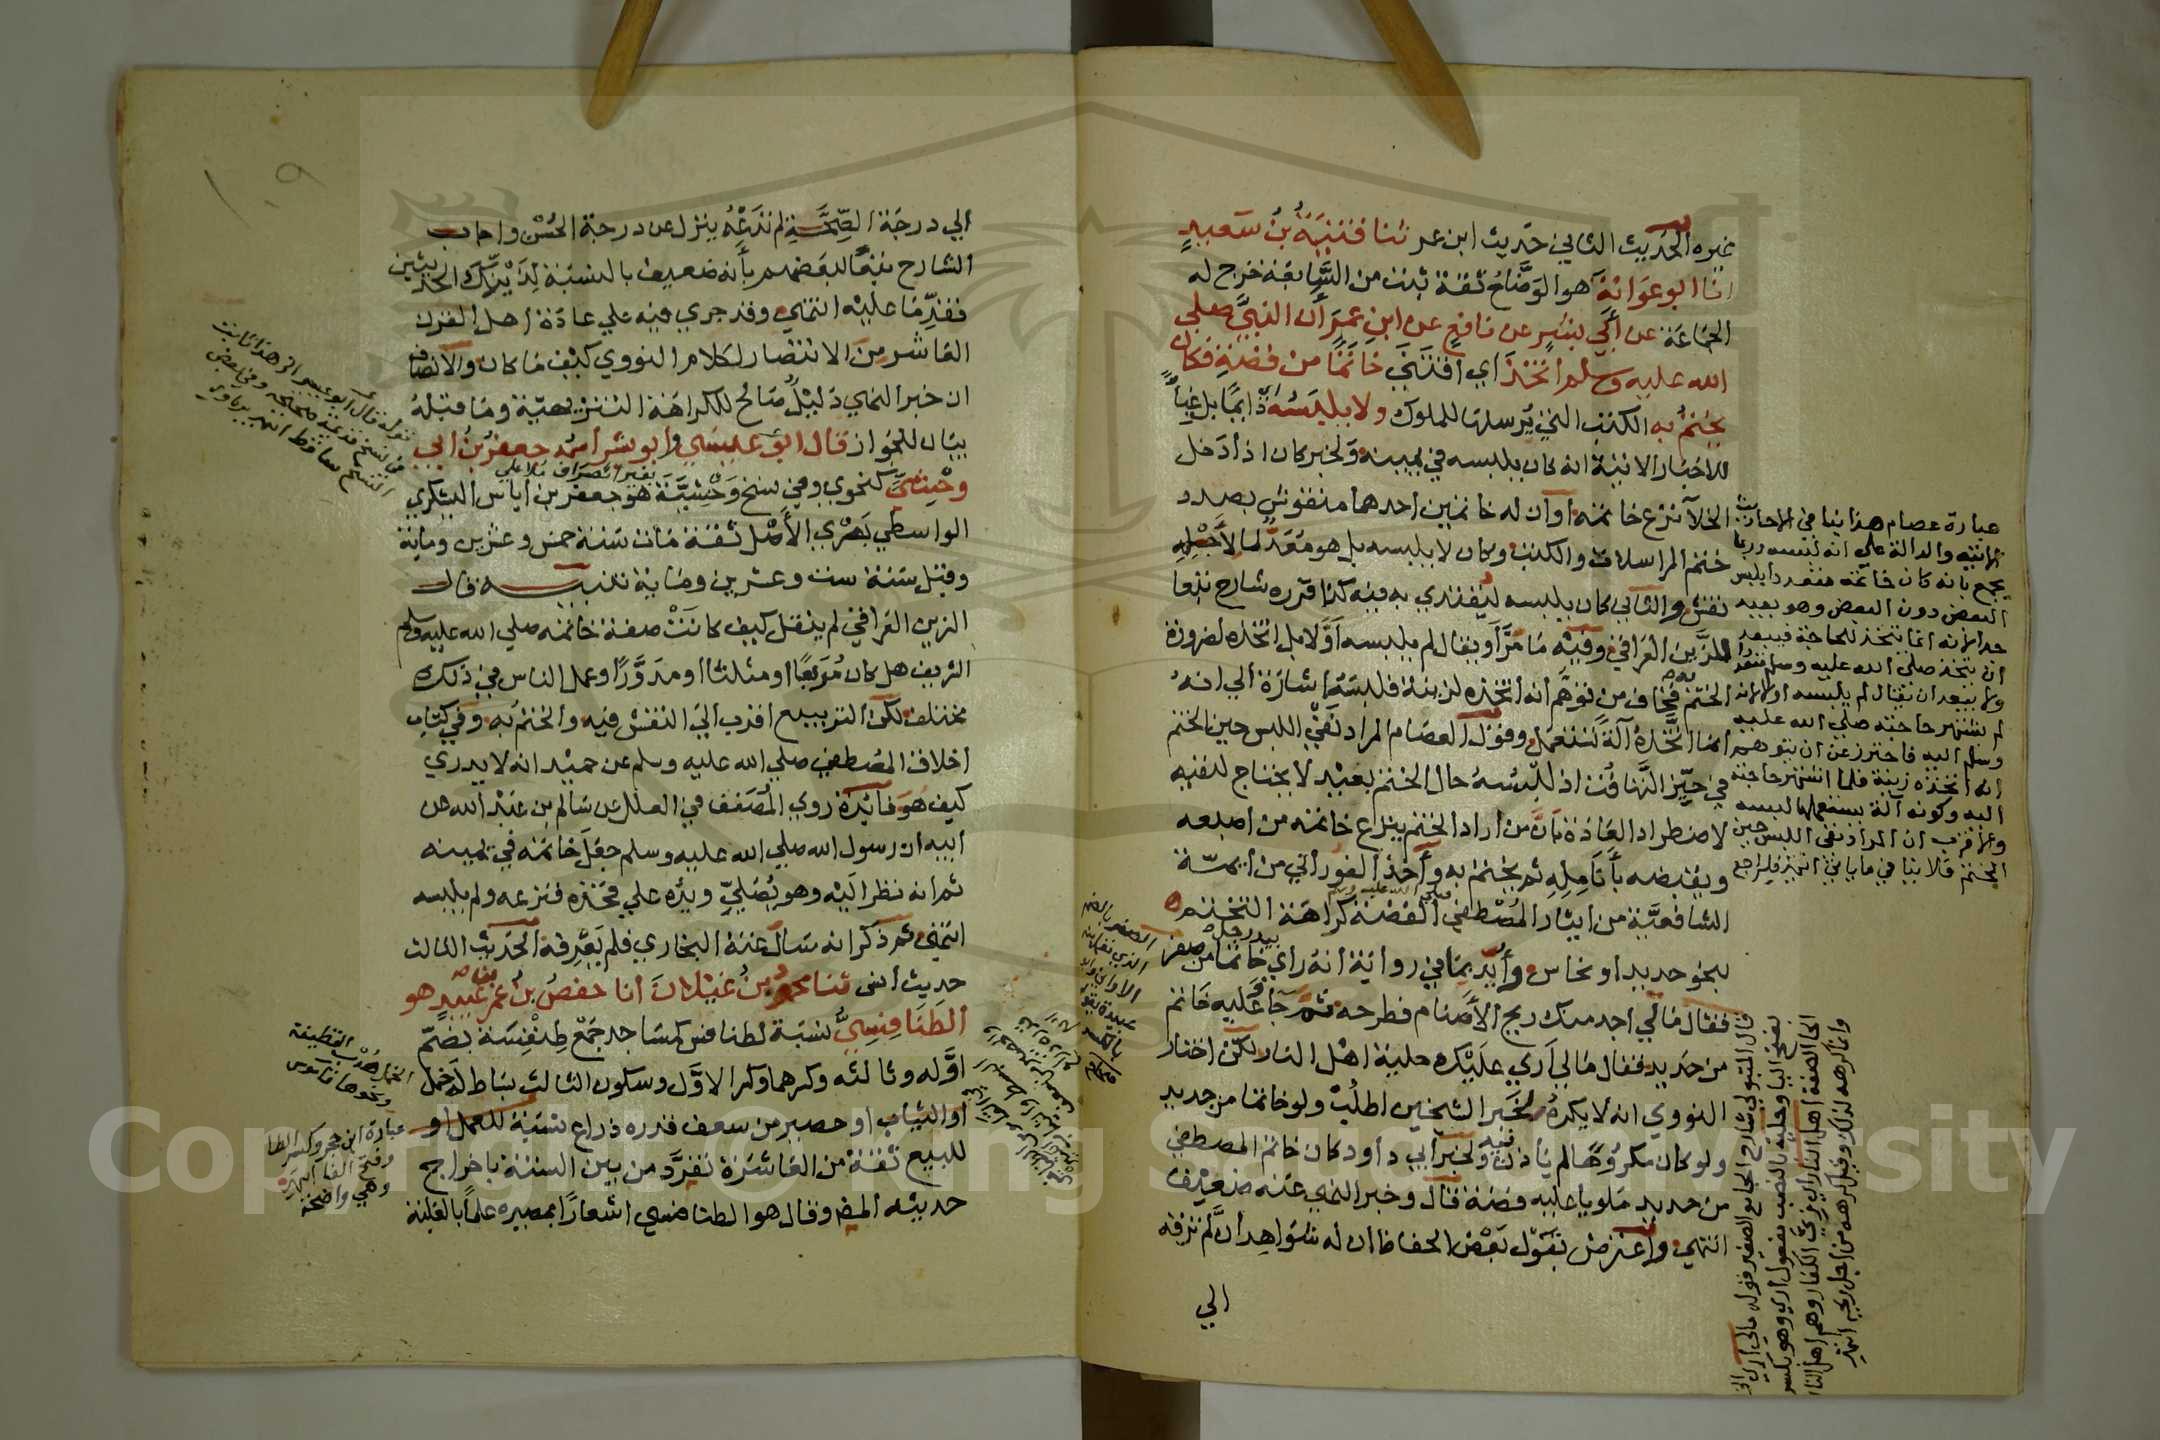 غيره الحديث الثاني حديث ابن عمر ثنا قتيبة بن سعيد
انا ابو عوانة هو الوضاح ثقة ثبت من السابعة خرج له
الجماعة عن أبي بشر عن نافع عن ابن عمر أن النبي صلى
الله عليه وسلم اتخذ اي اقتنى خاتما من فضة فكان
يختم به الكتب التي يرسلها للملوك ولا يلبسه دايما بل غبا
للاخبار الاتية انه كان يلبسه في يمينه ولخبر كان اذا دخل
الخلا نزع خاتمه أو ان له خاتمين احدهما منقوش بصدد
ختم المراسلات والكتب وكان لا يلبسه بل هو معد لما لأجله
نقش والثاني كان يلبسه ليقتدي به فيه كذا قرره شارح تبعا
للزين العراقي وفيه ما مر أو يقال لم يلبسه أولا بل اتخذه لضرورة
الختم فخاف من توهم انه اتخذه لزينة فلبسه اشارة الي انه
انما اتخذه آلة لتستعمل وقول العصام المراد نفي اللبس حين الختم
في حيز التهافت اذ للبسه حال الختم بعيد لا يحتاج لنفيه
لاضطراد العادة بان من أراد الختم ينزع خاتمه من اصبعه
ويقبضه بأنامله ثم يختم به وأخذ الفوراني من ايمة
الشافعية من ايثار المصطفى صلى الله عليه وسلم الفضة كراهة التختم
بنحو حديد او نحاس وأيد بما في رواية انه رأي بيد رجل خاتما من صفر
فقال مالي أجد منك ريح الأصنام فطرحه ثم جا وعليه خاتم
من حديد فقال مالي أري عليك حلية اهل النار لكن اختار
النووي انه لا يكره لخبر الشيخين اطلب ولو خاتما من حديد
ولو كان مكروها لم ياذن فيه ولخبر أبي داود كان خاتم المصطفى
من حديد ملويا عليه فضة قال وخبر النهي عنه ضعيف
انتهى واعترض بقول بعض الحفاظ ان له شواهد أن لم ترقه
الي
عبارة عصام هذا ينافي الاحاديث
الاتية والدالة علي انه لبسه وربما
يجمع بانه كان خاتمه متعدد أيلبس
البعض دون البعض وهو بعيد
جدا لانه انما يتخذ للحاجة فيبعد
ان يتخذ صلى الله عليه وسلم متعددا
ولا يبعد ان يقال لم يلبسه أولا لانه
لم تشتهر حاجته صلى الله عليه
وسلم اليه فاحترز عن ان يتوهم
انه اتخذه زينة فلما اشتهر حاجته
اليه وكونه آلة يستعملها لبسه
والاقرب ان المراد نفي اللبس حين
الختم فلا ينافي ما ياتي انتهى فليراجع
الي درجة الصحة لم ندعه ينزل عن درجة الحسن واجاب
الشارح تبعا لبعضهم بأنه ضعيف بالنسبة لذينك الحديثين
فقدما عليه انتهى وقد جري فيه علي عادة اهل القرن
العاشر من الانتصار لكلام النووي كيف ما كان والانصاف
ان خبر النهي دليل صالح للكراهة التنزيهية وما قبله
بيان للجواز قال ابو عيسي وأبو بشر أسمه جعفر بن ابي
وحشي كنحوي وفي نسخ وحشية بغير انصراف هو جعفر بن أياس اليشكري
الواسطي بصري الأصل ثقة مات سنة خمس وعشرين وماية
وقيل سنة ست وعشرين وماية تنبيه قال
الزين العراقي لم ينقل كيف كانت صفة خاتمه صلى الله عليه وسلم
الشريف هل كان مربعا او مثلثا او مدورا وعمل الناس في ذلك
مختلف لكن التربيع اقرب الي النقش فيه والختم به وفي كتاب
اخلاق المصطفى صلى الله عليه وسلم عن حميد انه لا يدري
كيف هو فائدة روي المصنف في العلل عن سالم بن عبد الله عن
أبيه ان رسول الله صلى الله عليه وسلم جعل خاتمه في يمينه
ثم انه نظر اليه وهو يصلي ويده علي فخذه فنزعه ولم يلبسه
انتهى ثم ذكر انه سأل عنه البخاري فلم يعرفه الحديث الثالث
حديث أنس ثنا محمود بن غيلان أنا حفص بن عمر بن عبيد هو
الطنافسي نسبة لطنافس كمساجد جمع طنفسة بضم
اوله وثالثه وكسرهما وكسر الاول وسكون الثالث بساط له خمل
أو الثياب او حصير من سعف قدره ذراع نسبة للعمل او
للبيع ثقة من العاشرة تفرد من بين الستة باخراج
حديثه المص وقال هو الطنافسي اشعارا بمصيره علما بالغلبة
الخمل هدب القطيفة
ونحوها قاموس
عبارة ابن حجر وكسر الطا
وفتح الفا
وهي واضحة